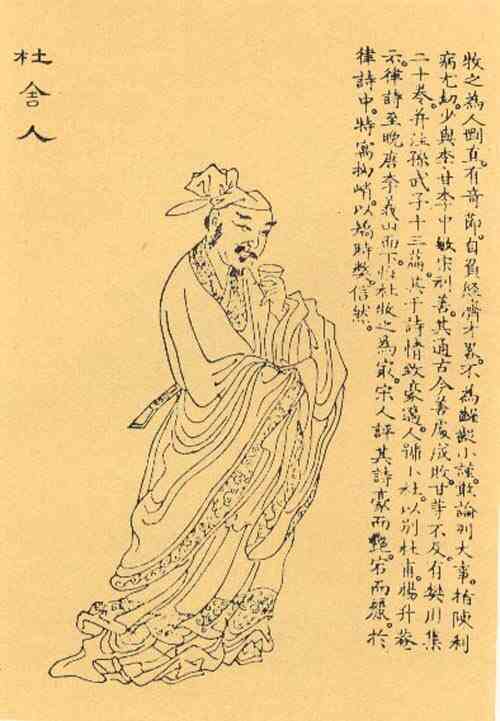 牧之為人剛直。有奇節。自負經濟才畧。不為齪齪小謹。敢論列大事。指陳利
病尤切。少與李甘李中敏宋邧善。其通古今善處成敗。甘等不及。有樊川集
二十卷。并注孫武子十三篇。其于詩情致豪邁。人號小杜。以別杜甫。楊升菴
云。律詩至晚唐李義山而下。惟杜牧之為最。宋人評其詩豪而艷。宕而麗。於
律詩中。特寓拗峭。以矯時弊。信然。
杜舍人